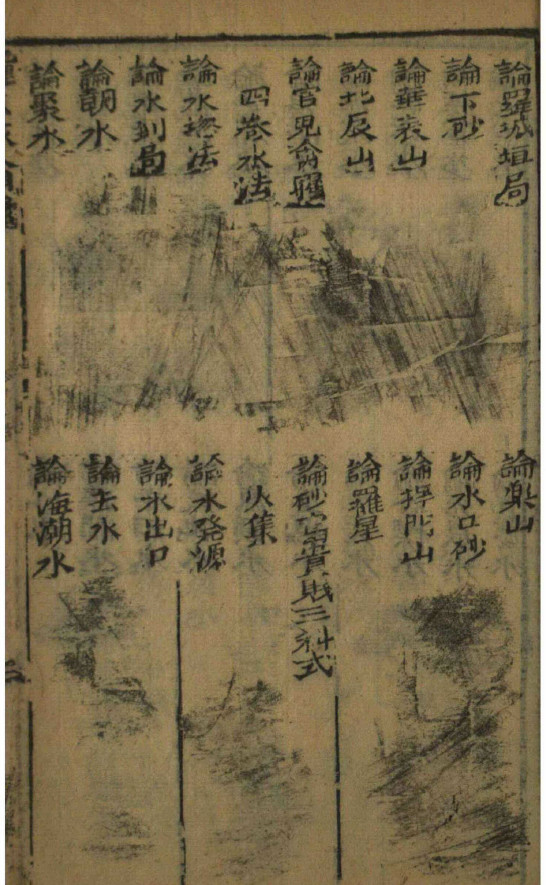 論羅城垣局
論樂山
論下砂
論水口砂
論華表山
論捍門山
論北辰山
論羅星
論官鬼禽曜
論砂富貴賎三科式
四卷水法
火集
論水捴法
論水發源
論水到局
論水出口
論朝水
論去水
論聚水
論海潮水